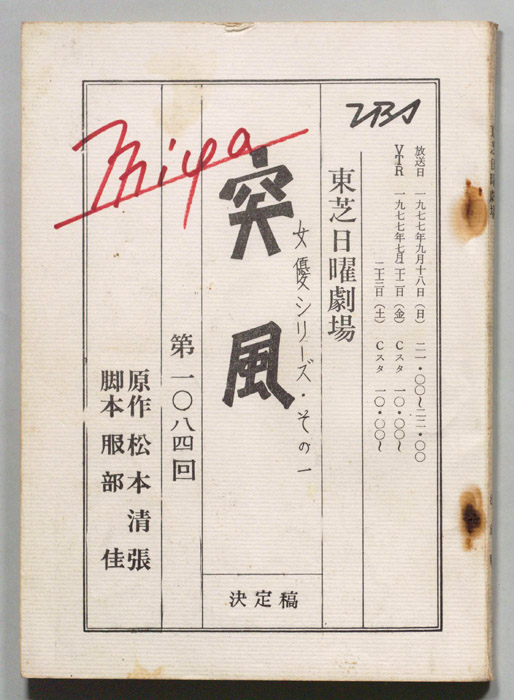 TBS
放送日 一九七七年九月十八日(日) 二一・〇〇〜二二・〇〇
VTR 一九七七年七月二十二日(金) Cスタ 一〇・〇〇〜
二十三日(土) Cスタ 一〇・〇〇〜
東芝日曜劇場
女優シリーズ・その一
突風
決定稿
第一〇八四回
原作 松本清張
脚本 服部佳
Miya